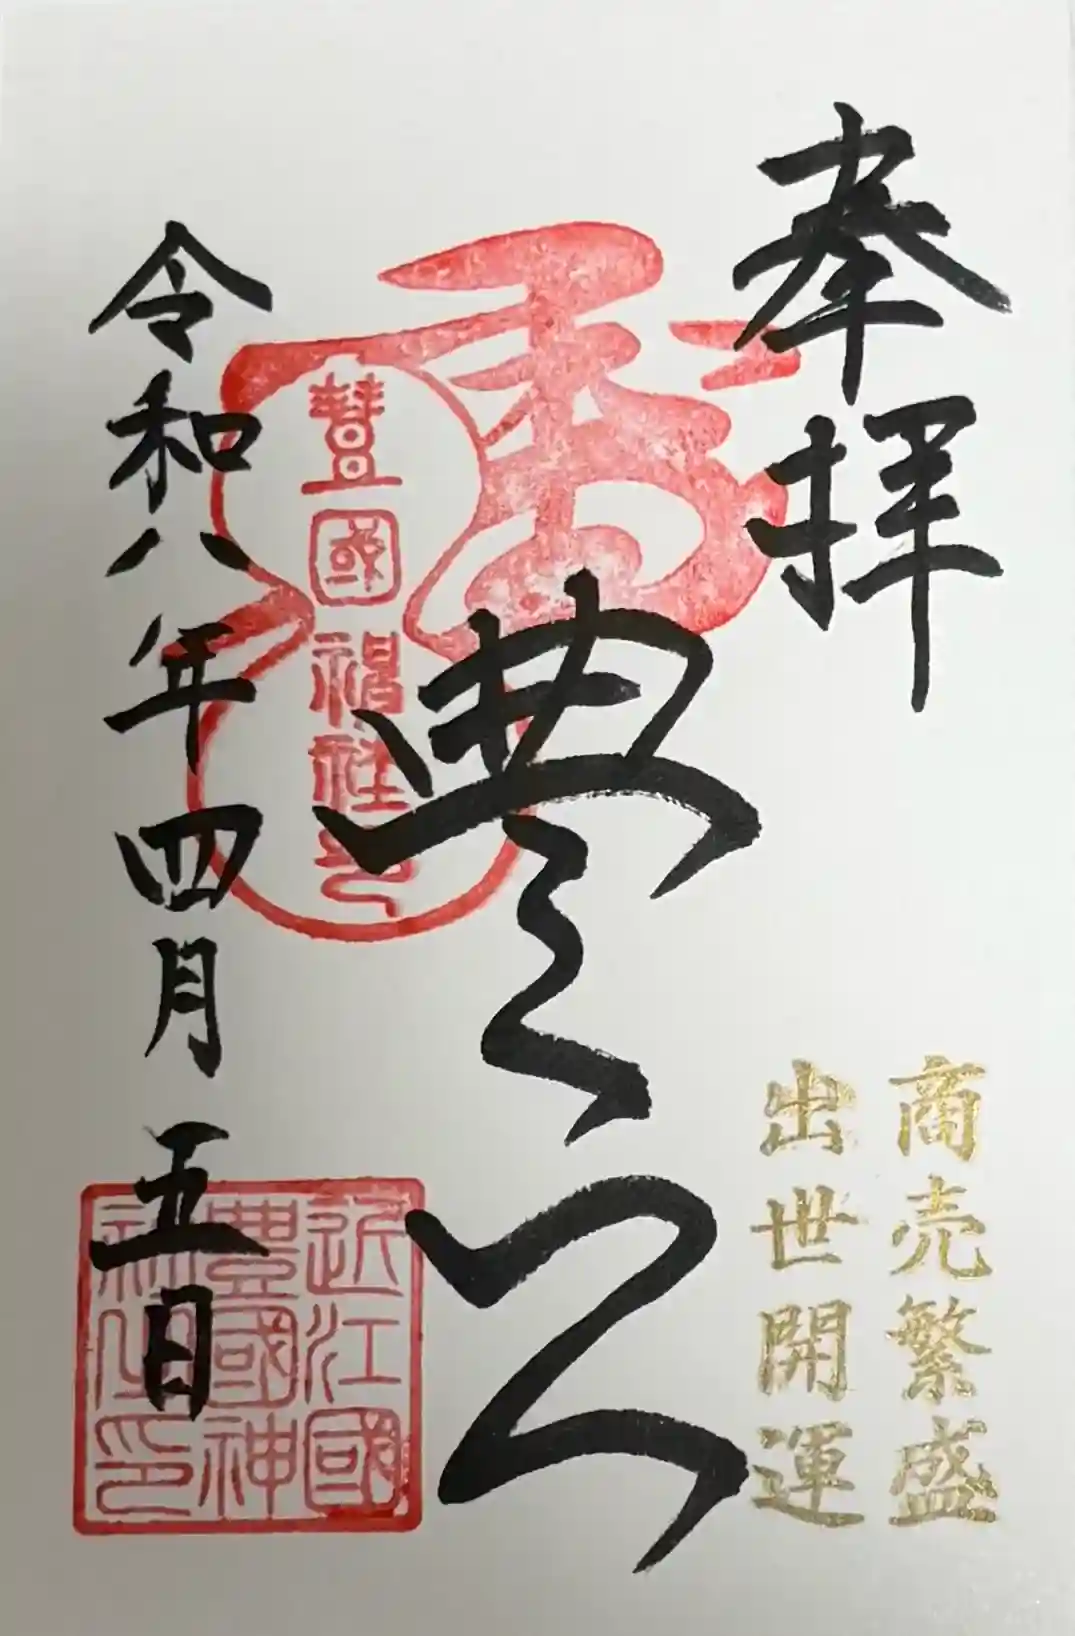 奉拝
商売繁盛
出世開運
豊公
豊國神社印
近江國
豊國神
社之印
令和八年四月五日